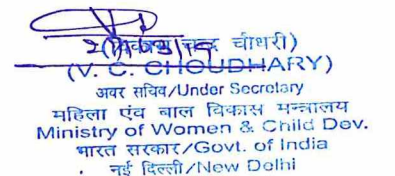 चन्द्र चौधरी)
(V. C. CHOUDHARY)
अवर सचिव/Under Secretary
महिला एंव बाल विकास मन्त्रालय
Ministry of Women & Child Dev.
भारत सरकार/Govt. of India
नई दिल्ली/New Delhi